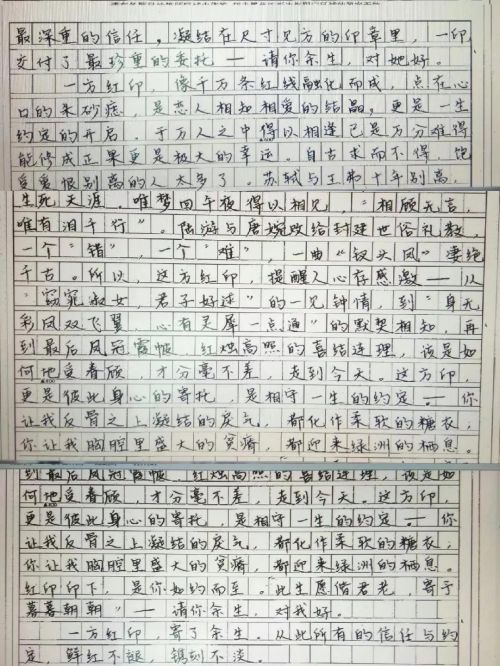 最深重的信任。凝结在尺寸见方的印章里，一印，
交付了最珍重的委托——请你余生，对她好。
一方红印，像千万条红线融化而成，点在心
口的朱砂痣，是恋人相知相爱的结晶，更是一生
约定的开启。千万人之中得以相逢已是万分难得
能修成正果更是极大的幸运。自古求而不得，饱
受爱恨别离的人太多了。苏轼与王弗十年别离，
生死天涯，唯梦回午夜得以相见，“相顾无言，
唯有泪千行”。陆游与唐婉败给封建世俗礼教，
一个“错”，一个“难”，一曲《钗头凤》凄绝
千古。所以，这方红印，提醒人心存感激——从
“窈窕淑女，君子好逑”的一见钟情，到“身无
彩凤双飞翼，心有灵犀一点通”的默契相知，再
到最后凤冠霞帔，红烛高照的喜结连理，该是如
何地受眷顾，才分毫不差，走到今天。这方印，
更是彼此身心的寄托，是相守一生的约定——你
让我反骨之上凝结的戾气，都化作柔软的糖衣；
你让我胸腔里盛大的冥痛，都迎来绿洲的栖息。
到最后凤冠霞帔，红烛高照的喜结连理，该是如
何地受眷顾，才分毫不差，走到今天。这方印，
更是彼此身心的寄托，是相守一生的约定——你
让我反骨之上凝结的戾气，都化作柔软的糖衣；
你让我胸腔里盛大的冥痛，都迎来绿洲的栖息。
红印印下，是你如约而至。此生愿偕君老，寄予
暮暮朝朝”——请你余生，对我好。
一方红印，寄了余生。从此所有的信任与约
定，鲜红不褪，镌刻不淡。